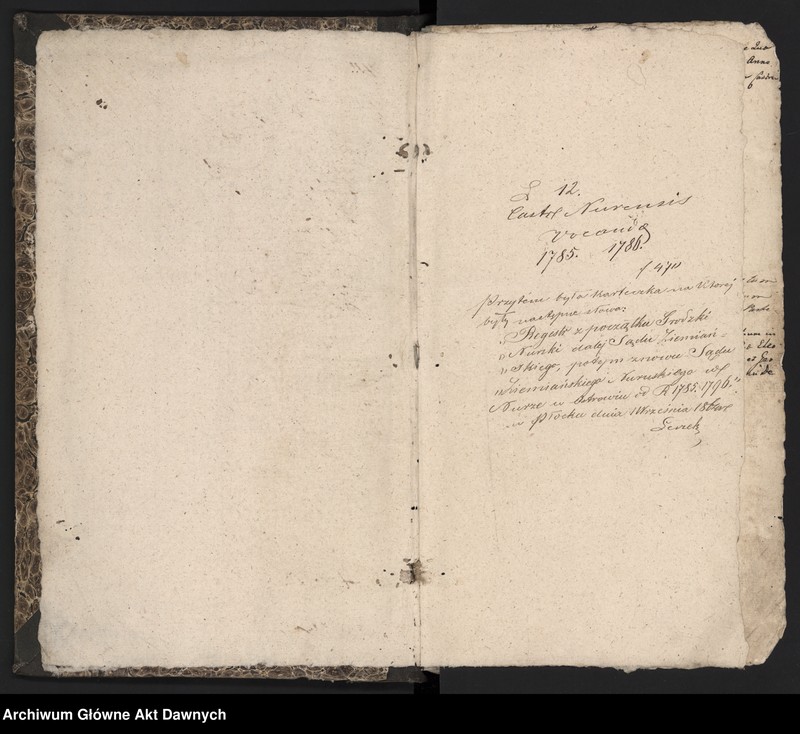 L 12.
Castri Nurensis
Vocanda
1785. 1786.
Przytém była karteczka na której
były następne słowa:
„Regestr z początku Grodzki
„Nurski dalej Sądu Ziemiań-
„skiego, potym znowu Sądu
„Ziemiańskiego Nurskiego w
Nurze w Ostrowiu od R. 1785. 1796."
w Płocku dnia 1 Września
Anno
Archiwum Główne Akt Dawnych